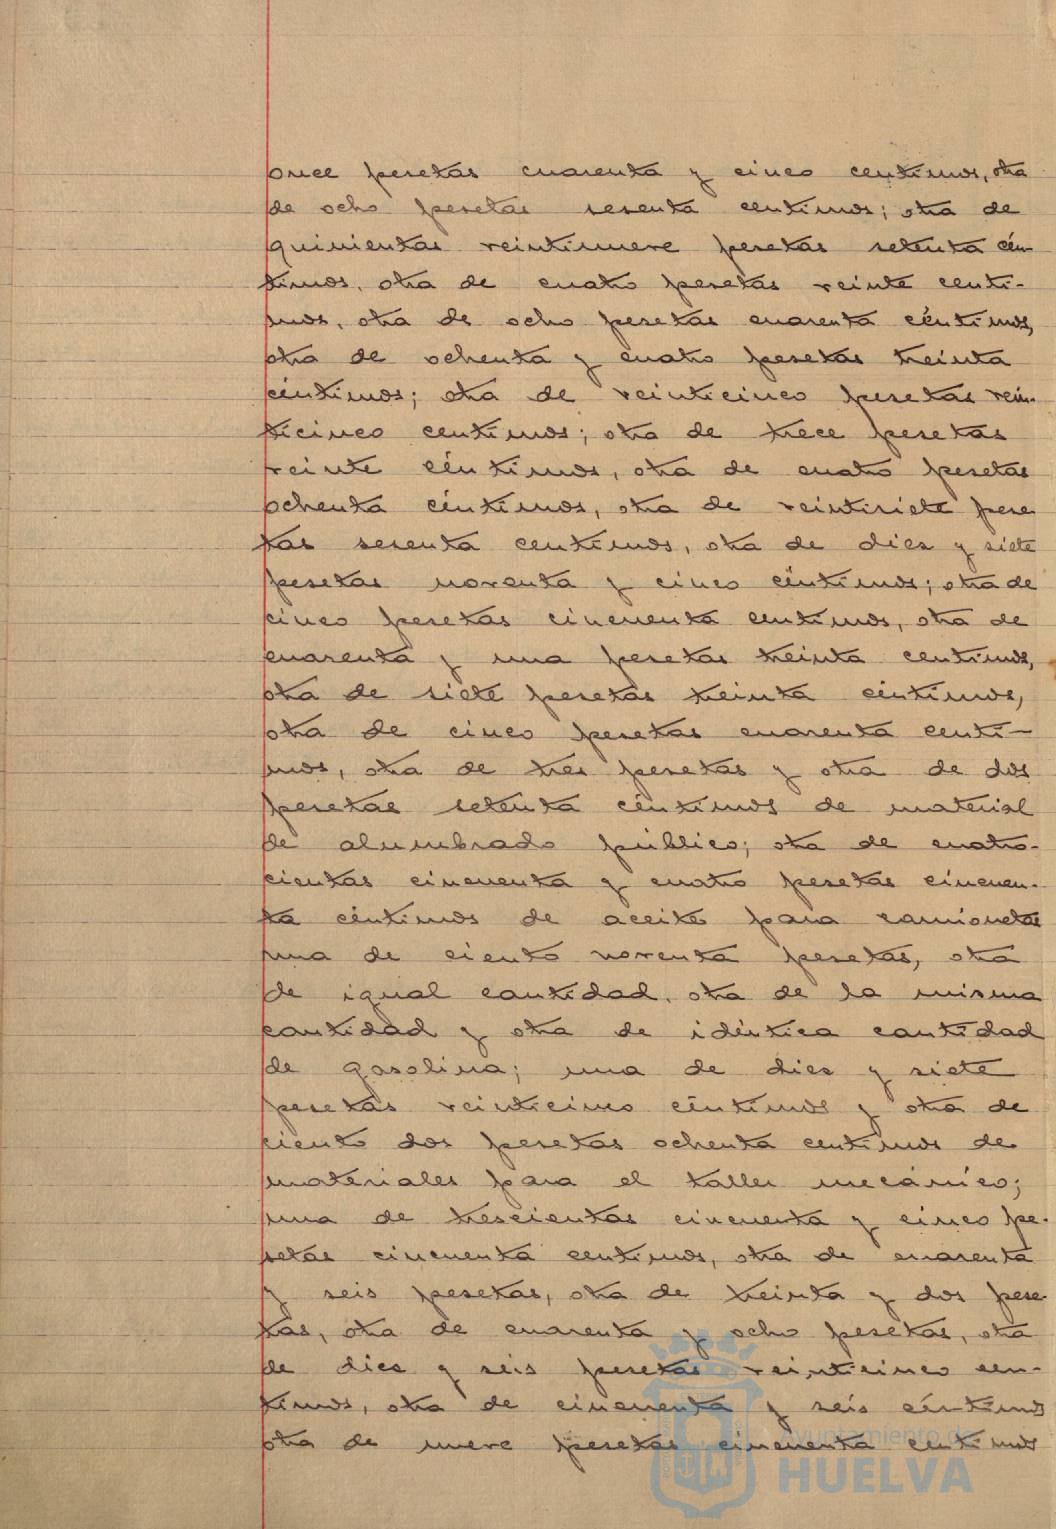 once pesetas cuarenta y cinco centimos, otra
de ocho pesetas sesenta centimos; otra de
quinientas veintinueve pesetas setenta cén-
timos, otra de cuatro pesetas veinte centi-
mos, otra de ocho pesetas cuarenta céntimos,
otra de ochenta y cuatro pesetas treinta
céntimos; otra de veinticinco pesetas vein-
ticinco centimos; otra de trece pesetas
veinte céntimos, otra de cuatro pesetas
ochenta céntimos, otra de veintisiete pese
tas sesenta centimos, otra de diez y siete
pesetas noventa y cinco céntimos; otra de
cinco pesetas cincuenta centimos, otra de
cuarenta y una pesetas treinta centimos,
otra de siete pesetas treinta céntimos,
otra de cinco pesetas cuarenta centi-
mos, otra de tres pesetas y otra de dos
pesetas setenta céntimos de material
de alumbrado público; otra de cuatro-
cientas cincuenta y cuatro pesetas cincuen-
ta céntimos de aceite para camionetas
una de ciento noventa pesetas, otra
de igual cantidad, otra de la misma
cantidad y otra de idéntica cantidad
de gasolina; una de diez y siete
pesetas veinticinco céntimos y otra de
ciento dos pesetas ochenta centimos de
materiales para el taller mecánico;
una de trescientas cincuenta y cinco pe-
setas cincuenta centimos, otra de cuarenta
y seis pesetas, otra de treinta y dos pese-
tas, otra de cuarenta y ocho pesetas, otra
de diez y seis pesetas veinticinco cen-
timos, otra de cincuenta y seis céntimos
otra de nueve pesetas cincuenta centimos
Ayuntamiento de
HUELVA